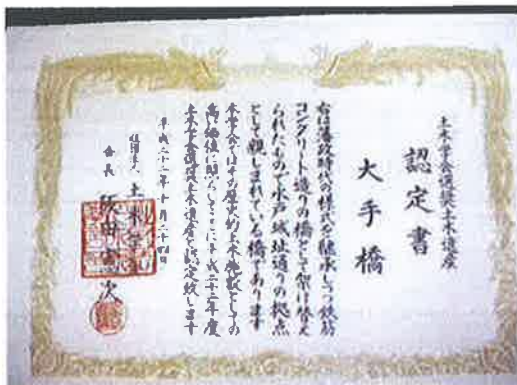 土木学会選奨土木遺産
認定書
大手橋
右は藩政時代の様式を継承しつつ鉄筋
コンクリート造りの橋として架け替え
られたもので水戸城址通りの拠点
として親しまれている橋であります
本学会ではその歴史的土木施設としての
高い価値に照らしてここに平成二十三年度
土木学会選奨土木遺産に認定致します
平成二十三年十月二十四日
社団法人 土木学会
会長 田 次